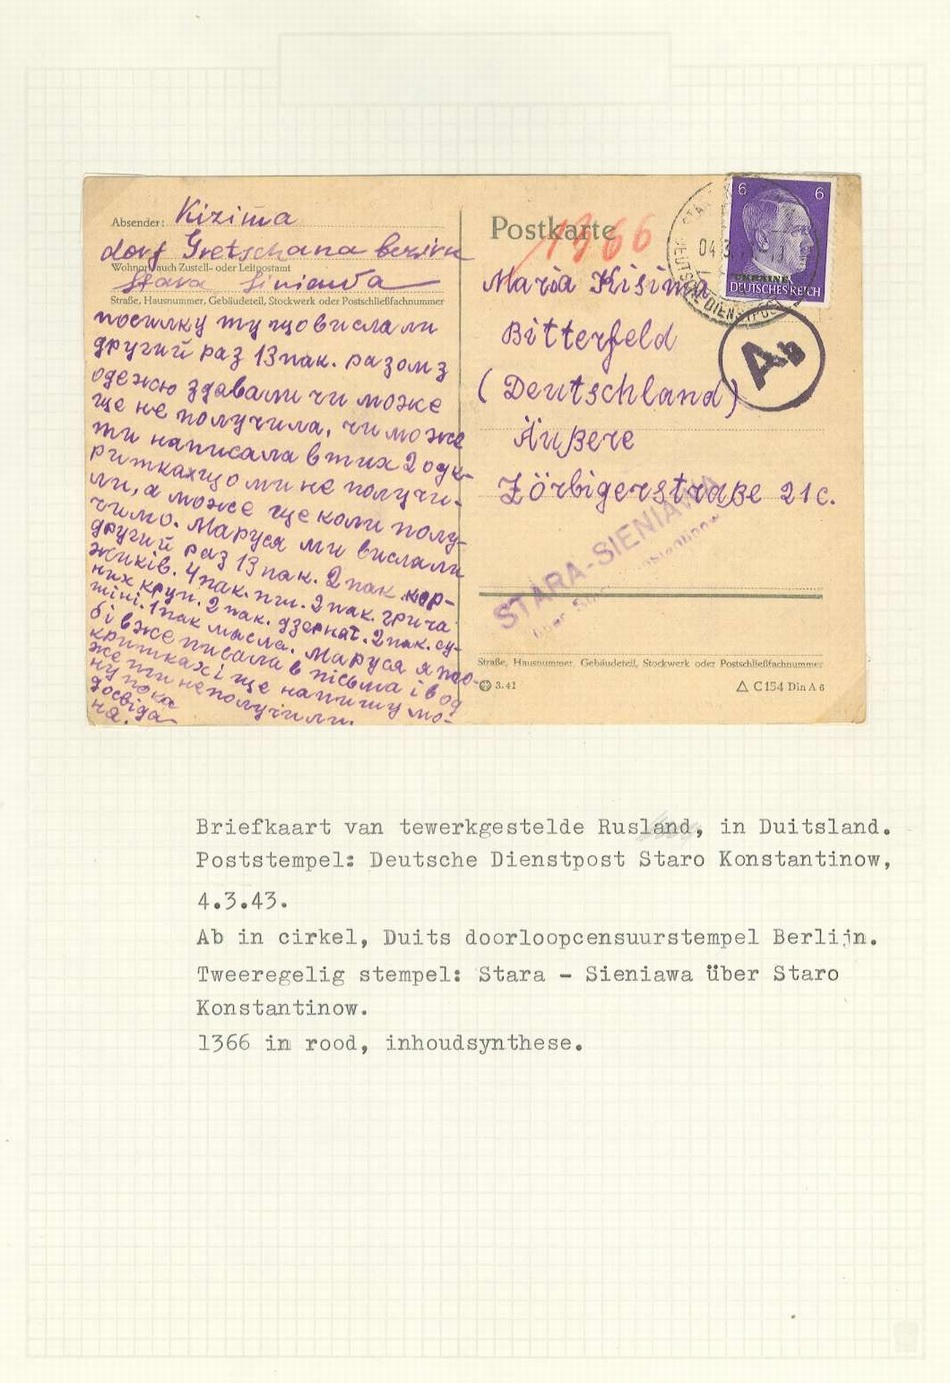 Absender: Kizima
dorf Gretschana bezirk
Wohnort, auch Zustell- oder Leitpostamt
Stara Siniawa
Straße, Hausnummer, Gebäudeteil, Stockwerk oder Postschließfachnummer
посилку ту що вислали
другий раз 13 пак. разом з
одежою здавали чи може
ще не получила, чи може
ти написала в тих 2 отк-
ритках що ми не получи-
ли, а може ще коли полу-
чимо. Маруся ми вислали
другий раз 13 пак. 2 пак. кор-
жиків. 4 пак. пш. 2 пак. греча
них круп. 2 пак. 2 пак. су-
шіні. 1 пак масла. Маруся я то-
бі вже писала в письма і в од
критках і ще напишу мо-
же ти не получили.
ну пока
досвіда
ня.
Postkarte
1366
6 6
UKRAINE
DEUTSCHES REICH
Maria Kisima
Bitterfeld
(Deutschland)
Äußere
Zörbigerstraße 21c.
Ab
STARA-SIENIAWA
über
Straße, Hausnummer, Gebäudeteil, Stockwerk oder Postschließfachnummer
3.41
C 154 Din A 6
Briefkaart van tewerkgestelde Rusland, in Duitsland.
Poststempel: Deutsche Dienstpost Staro Konstantinow,
4.3.43.
Ab in cirkel, Duits doorloopcensuurstempel Berlijn.
Tweeregelig stempel: Stara - Sieniawa über Staro
Konstantinow.
1366 in rood, inhoudsynthese.